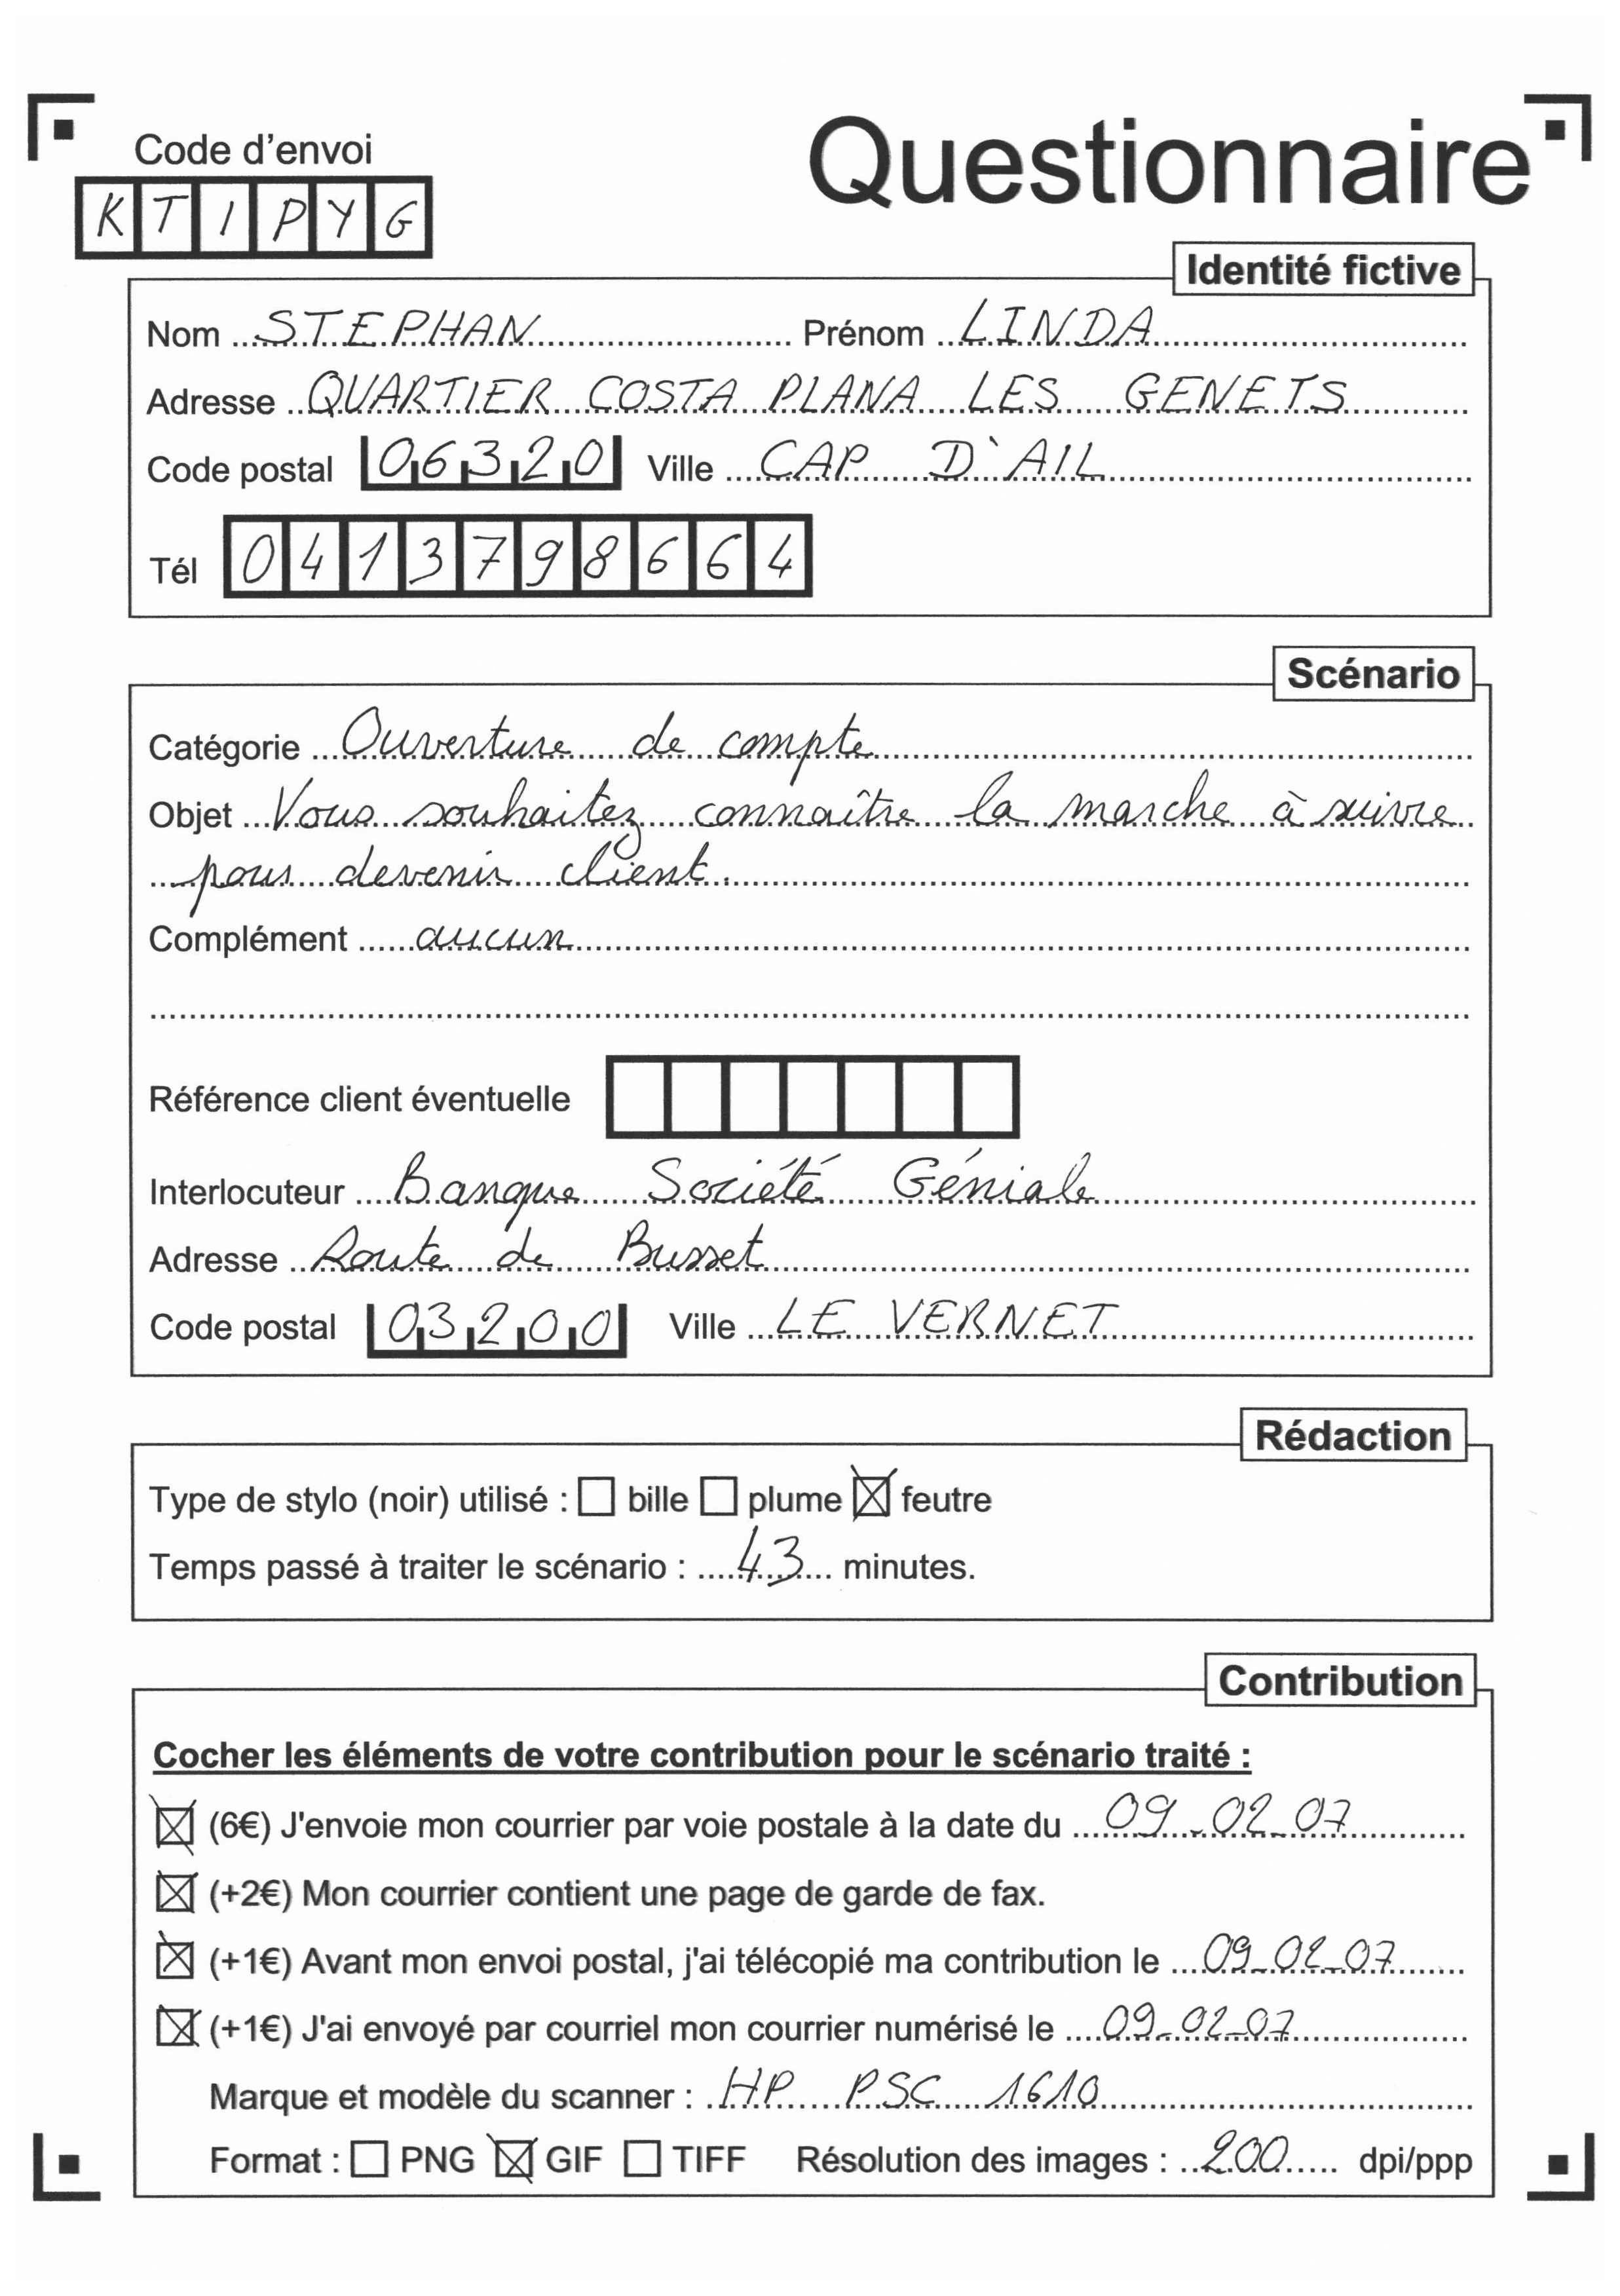 Questionnaire
Code d'envoi
KTIPYG
Identité fictive
Nom STEPHAN Prénom LINDA
Adresse QUARTIER COSTA PLANA LES GENETS
Code postal 06320 Ville CAP D'AIL
Tél 0413798664
Scénario
Catégorie Ouverture de compte
Objet Vous souhaitez connaître la marche à suivre
pour devenir client.
Complément aucun
Référence client éventuelle
Interlocuteur Banque Société Géniale
Adresse Route de Busset
Code postal 03200 Ville LE VERNET
Rédaction
Type de stylo (noir) utilisé : ☐ bille ☐ plume ☒ feutre
Temps passé à traiter le scénario : 43 minutes.
Contribution
Cocher les éléments de votre contribution pour le scénario traité :
☒ (6€) J'envoie mon courrier par voie postale à la date du 09-02-07
☒ (+2€) Mon courrier contient une page de garde de fax.
☒ (+1€) Avant mon envoi postal, j'ai télécopié ma contribution le 09-02-07
☒ (+1€) J'ai envoyé par courriel mon courrier numérisé le 09-02-07
Marque et modèle du scanner : HP PSC 1610
Format : ☐ PNG ☒ GIF ☐ TIFF Résolution des images : 200 dpi/ppp